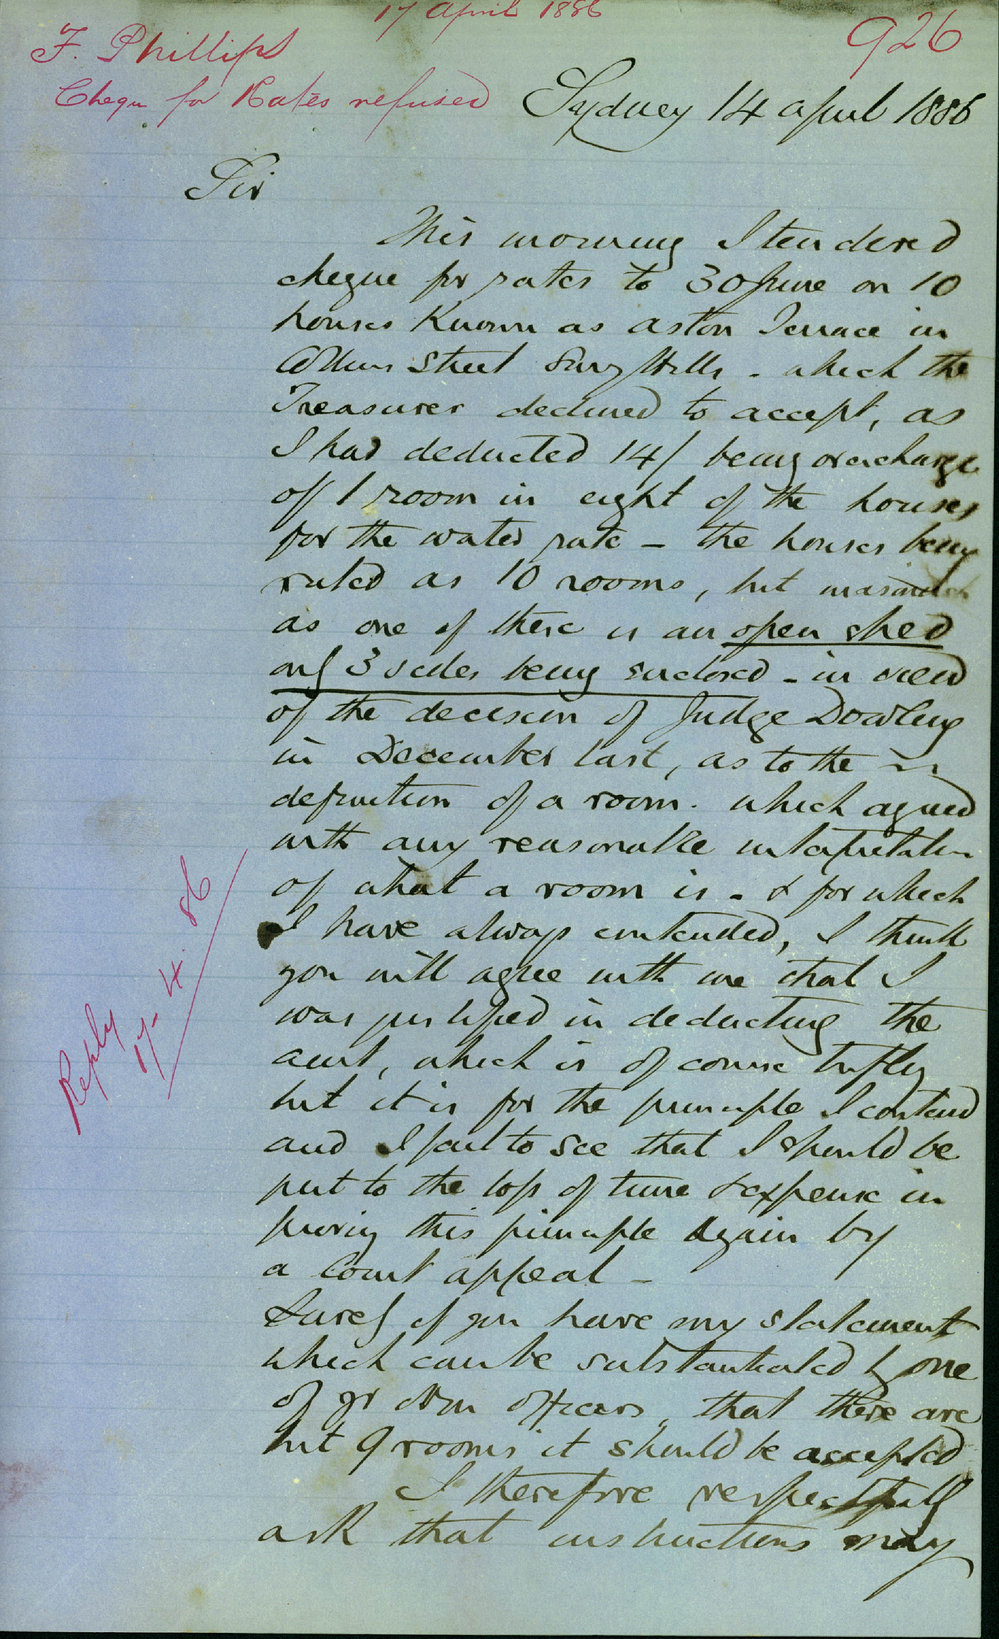 17 April 1886
926
F. Phillips
Cheque for Rates refused
Sydney 14 April 1886
Sir
This morning I tendered
cheque for rates to 30 June on 10
houses Known as Aston Terrace in
Street Surry Hills - which the
Treasurer declined to accept, as
I had deducted 14/ being overcharge
of 1 room in eight of the houses
for the water rate - the houses being
rated as 10 rooms, but inasmuch
as one of these is an open shed
only 3 sides being enclosed - in view
of the decision of Judge Dowling
in December last, as to the
definition of a room. which agreed
with any reasonable interpretation
of what a room is - & for which
I have always contended, I think
you will agree with me that I
was justified in deducting the
amt, which is of course trifling
but it is for the principle I contend
and I fail to see that I should be
put to the loss of time & expense in
proving this principle again by
a Court appeal -
Surely if you have my statement
which can be substantiated by one
of yr own officers, that there are
but 9 rooms it should be accepted
I therefore respectfully
ask that instructions may
Reply
17-4-86